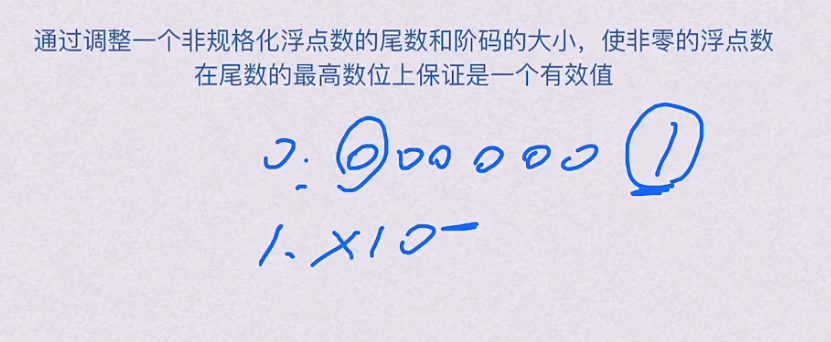 通过调整一个非规格化浮点数的尾数和阶码的大小，使非零的浮点数
在尾数的最高数位上保证是一个有效值
0.0000001
1.×10⁻